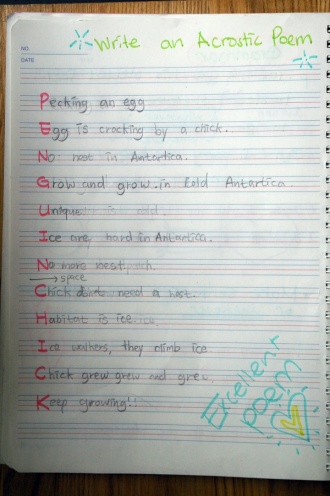 NO
DATE
Write an Acrostic Poem
Pecking an egg
Egg is cracking by a chick.
No nest in Antartica.
Grow and grow in Cold Antartica.
Unique
Ice are, hard in Antartica.
No more nest,
→ space
Chick need a nest.
Habitat is ice
walkers, they climb ice
Chick grew grew and grew.
Keep growing!!
Excellent
poem